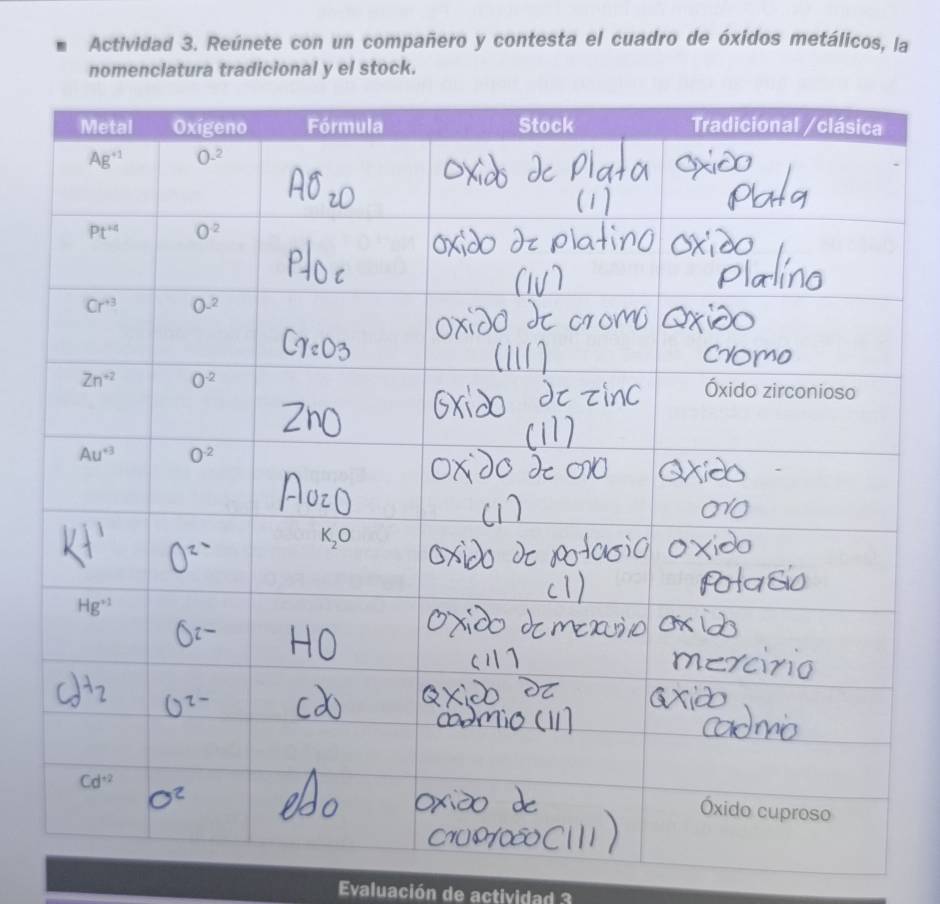 Actividad 3. Reúnete con un compañero y contesta el cuadro de óxidos metálicos, la
nomenclatura tradicional y el stock.
Metal Oxígeno Fórmula Stock Tradicional /clásica
Ag⁺¹ O⁻² AO₂O oxido de Plata (I) oxido Plata
Pt⁺⁴ O⁻² PtO₂ oxido de platino (IV) oxido Platino
Cr⁺³ O⁻² Cr₂O₃ oxido de cromo (III) oxido cromo
Zn⁺² O⁻² ZnO oxido de zinc (II) Óxido zirconioso
Au⁺³ O⁻² Au₂O oxido de oro (I) oxido oro
K+¹ O²⁻ K₂O oxido de potasio (I) oxido potasio
Hg⁺¹ O²⁻ HO oxido de mercurio (II) oxido mercirio
Cd⁺² O²⁻ CdO oxido de cadmio (II) oxido cadmio
Cd⁺² O² edo oxido de cruproso (III) Óxido cuproso
Evaluación de actividad 3